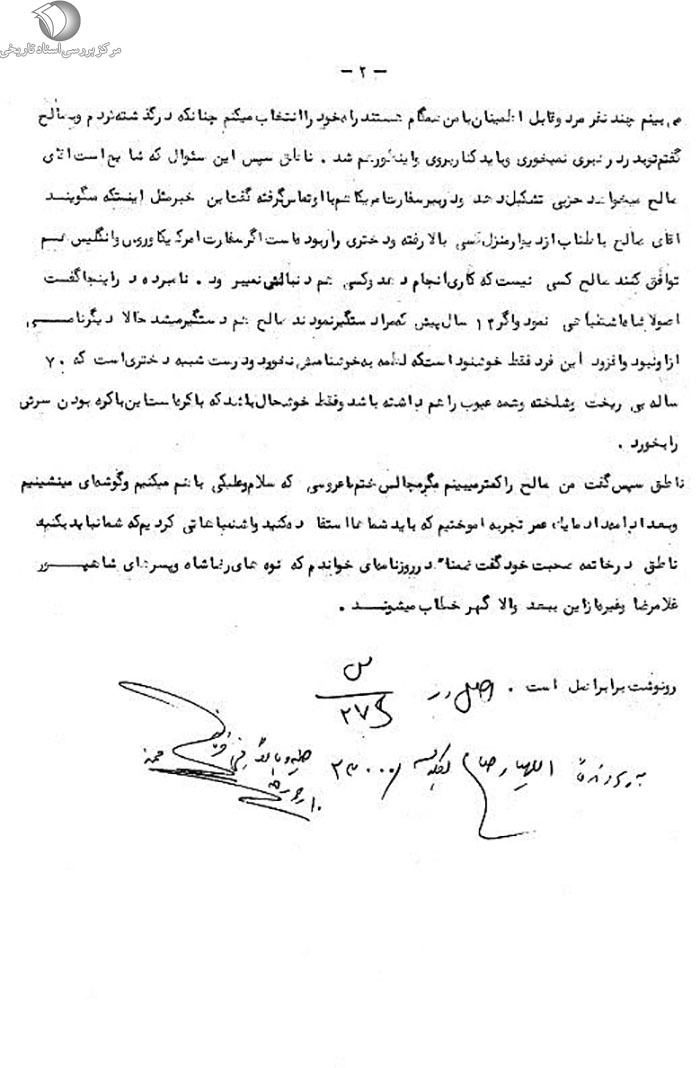 مرکز بررسی اسناد تاریخی
- ۲ -
می بینم چند نفر مرد وقابل اطمینان با من همگام هستند راه خود را انتخاب میکنم چنانکه در گذشته کردم وبه صالح
گفتم تو بدرد رهبری نمیخوری وباید کنار بروی واینطور هم شد . ناطق سپس این سئوال که شایع است اقای
صالح میخواهد حزبی تشکیل دهد و دبیر سفارت امریکا هم با او تماس گرفته گفت این خبر مثل اینستکه میگویند
اقای صالح با طناب از دیوار منزل کسی بالا رفته ودختری را ربوده است اگر سفارت امریکا وروس وانگلیس هم
توافق کنند صالح کسی نیست که کاری انجام دهد وکسی هم دنبالش نمیرود . نامبرده در اینجا گفت
اصولا شاه اشتباهی نمود واگر ۱۲ سال پیش که مرا دستگیر نمودند صالح هم دستگیر میشد حالا دیگر نامی
از او نبود وافزود این فرد فقط خوشنود استکه لطمه به خوشنامیش نخورد ودرست شبیه دختری است که ۷۰
ساله بی ریخت وشلخته وهمه عیوب را هم داشته باشد وفقط خوشحال باشد که باکره است این باکره بودن سرش
را بخورد .
ناطق سپس گفت من صالح را کمتر میبینم مگر مجالس ختم یا عروسی که سلام وعلیکی با هم میکنیم وگوشه ای مینشینیم
وبعد ادامه داد ما یک عمر تجربه اموختیم که باید شما ها استفاده کنید واشتباهاتی کردیم که شما نباید بکنید
ناطق در خاتمه صحبت خود گفت ضمنا" در روزنامه ای خواندم که نوه های رضاشاه وپسرهای شاهپور
غلامرضا وغیره از این ببعد والا گهر خطاب میشوند .
رونوشت برابر اصل است . اصل در
۲۷۵
۲۳۰۰۰